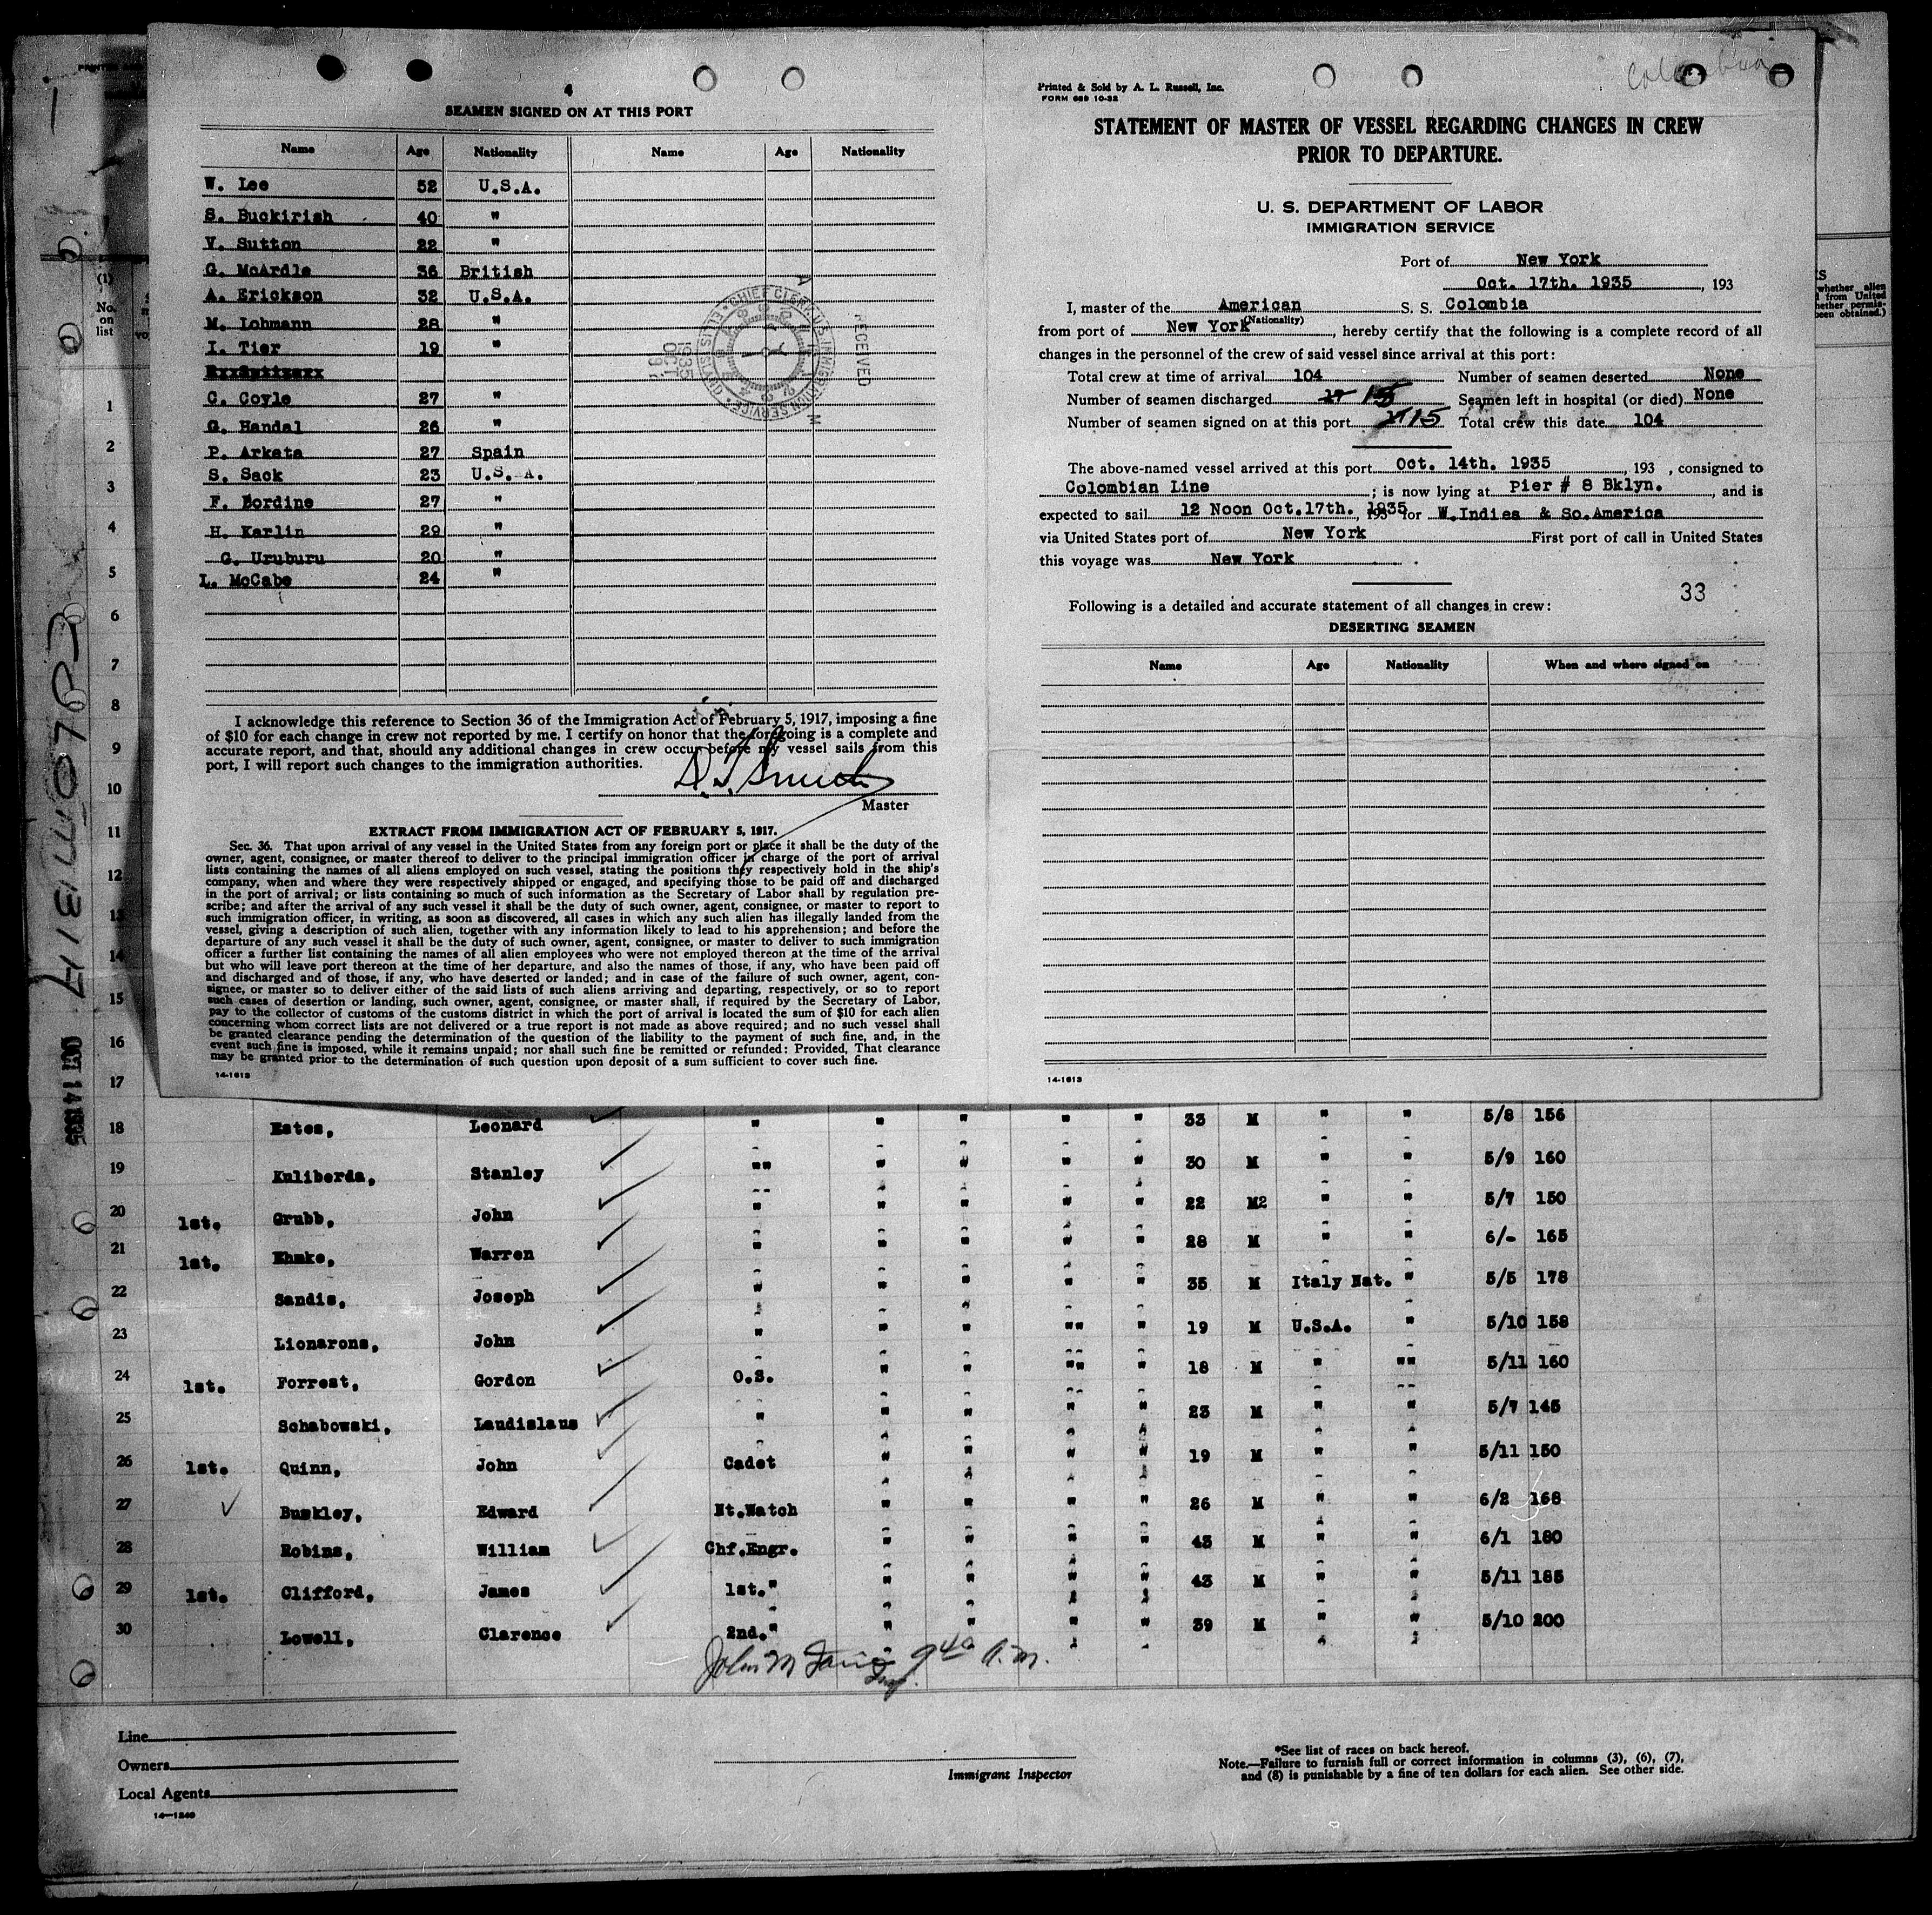 4
SEAMEN SIGNED ON AT THIS PORT
Name Age Nationality Name Age Nationality
W. Lee 52 U.S.A.
S. Buckirish 40 "
V. Sutton 22 "
G. McArdle 36 British
A. Erickson 32 U.S.A.
M. Lohmann 28 "
I. Tier 19 "
C. Coyle 27 "
G. Handal 26 "
P. Arkata 27 Spain
S. Sack 23 U.S. A.
F. Bordine 27 "
H. Karlin 29 "
G. Uruburu 20 "
L. McCabe 24 "
RECEIVED
CHIEF CLERK U.S. IMMIGRATION SERVICE
ELLIS IS.
1935
OCT
I acknowledge this reference to Section 36 of the Immigration Act of February 5, 1917, imposing a fine
of $10 for each change in crew not reported by me. I certify on honor that the foregoing is a complete and
accurate report, and that, should any additional changes in crew occur before my vessel sails from this
port, I will report such changes to the immigration authorities.
Master
EXTRACT FROM IMMIGRATION ACT OF FEBRUARY 5, 1917.
Sec. 36. That upon arrival of any vessel in the United States from any foreign port or place it shall be the duty of the
owner, agent, consignee, or master thereof to deliver to the principal immigration officer in charge of the port of arrival
lists containing the names of all aliens employed on such vessel, stating the positions they respectively hold in the ship's
company, when and where they were respectively shipped or engaged, and specifying those to be paid off and discharged
in the port of arrival; or lists containing so much of such information as the Secretary of Labor shall by regulation pre-
scribe; and after the arrival of any such vessel it shall be the duty of such owner, agent, consignee, or master to report to
such immigration officer, in writing, as soon as discovered, all cases in which any such alien has illegally landed from the
vessel, giving a description of such alien, together with any information likely to lead to his apprehension; and before the
departure of any such vessel it shall be the duty of such owner, agent, consignee, or master to deliver to such immigration
officer a further list containing the names of all alien employees who were not employed thereon at the time of the arrival
but who will leave port thereon at the time of her departure, and also the names of those, if any, who have been paid off
and discharged and of those, if any, who have deserted or landed; and in case of the failure of such owner, agent, con-
signee, or master so to deliver either of the said lists of such aliens arriving and departing, respectively, or so to report
such cases of desertion or landing, such owner, agent, consignee, or master shall, if required by the Secretary of Labor,
pay to the collector of customs of the customs district in which the port of arrival is located the sum of $10 for each alien
concerning whom correct lists are not delivered or a true report is not made as above required; and no such vessel shall
be granted clearance pending the determination of the question of the liability to the payment of such fine, and, in the
event such fine is imposed, while it remains unpaid; nor shall such fine be remitted or refunded: Provided, That clearance
may be granted prior to the determination of such question upon deposit of a sum sufficient to cover such fine.
14-1613
Printed & Sold by A. L. Russell, Inc.
FORM 689 10-32
STATEMENT OF MASTER OF VESSEL REGARDING CHANGES IN CREW
PRIOR TO DEPARTURE.
U. S. DEPARTMENT OF LABOR
IMMIGRATION SERVICE
Port of New York
Oct. 17th. 1935, 193
I, master of the American S. S. Colombia
(Nationality)
from port of New York, hereby certify that the following is a complete record of all
changes in the personnel of the crew of said vessel since arrival at this port:
Total crew at time of arrival 104 Number of seamen deserted None
Number of seamen discharged 15 Seamen left in hospital (or died) None
Number of seamen signed on at this port 15 Total crew this date 104
The above-named vessel arrived at this port Oct. 14th. 1935, 193 , consigned to
Colombian Line; is now lying at Pier # 8 Bklyn., and is
expected to sail 12 Noon Oct.17th. 1935, 193 for W.Indies & So.America
via United States port of New York First port of call in United States
this voyage was New York.
33
Following is a detailed and accurate statement of all changes in crew:
DESERTING SEAMEN
Name Age Nationality When and where signed on
14-1613
(1)
No.
on
list
1
2
3
4
5
6
7
8
9
10
11
12
13
14
15
16
17
OCT 14 1935
18 Estes, Leonard " " " " " 33 M " " 5/8 156
19 Kuliberda, Stanley "" " " " " 30 M " " 5/9 160
20 1st. Grubb, John " " " " " 22 M2 " " 5/7 150
21 1st. Ehmke, Warren " " " " " 28 M " " 6/- 165
22 Sandis, Joseph " " " " " 35 M Italy Nat. " 5/5 178
23 Lionarons, John " " " "" " 19 M U.S.A. " 5/10 158
24 1st. Forrest, Gordon O.S. " " "" " 18 M " "" 5/11 160
25 Schabowski, Laudislaus " " " " " 23 M " " 5/7 145
26 1st. Quinn, John Cadet " " " " 19 M " " 5/11 150
27 Buskley, Edward Nt.Watch " " " " 26 M " " 6/2 168
28 Robins, William Chf.Engr. " " " " 43 M " " 6/1 180
29 1st. Clifford, James 1st." " " " " 43 M " " 5/11 185
30 Lowell, Clarence 2nd." " " " " 39 M " " 5/10 200
9 40 A.M.
Line
Owners
Local Agents
14—1240
Immigrant Inspector
*See list of races on back hereof.
Note.—Failure to furnish full or correct information in columns (3), (6), (7),
and (8) is punishable by a fine of ten dollars for each alien. See other side.